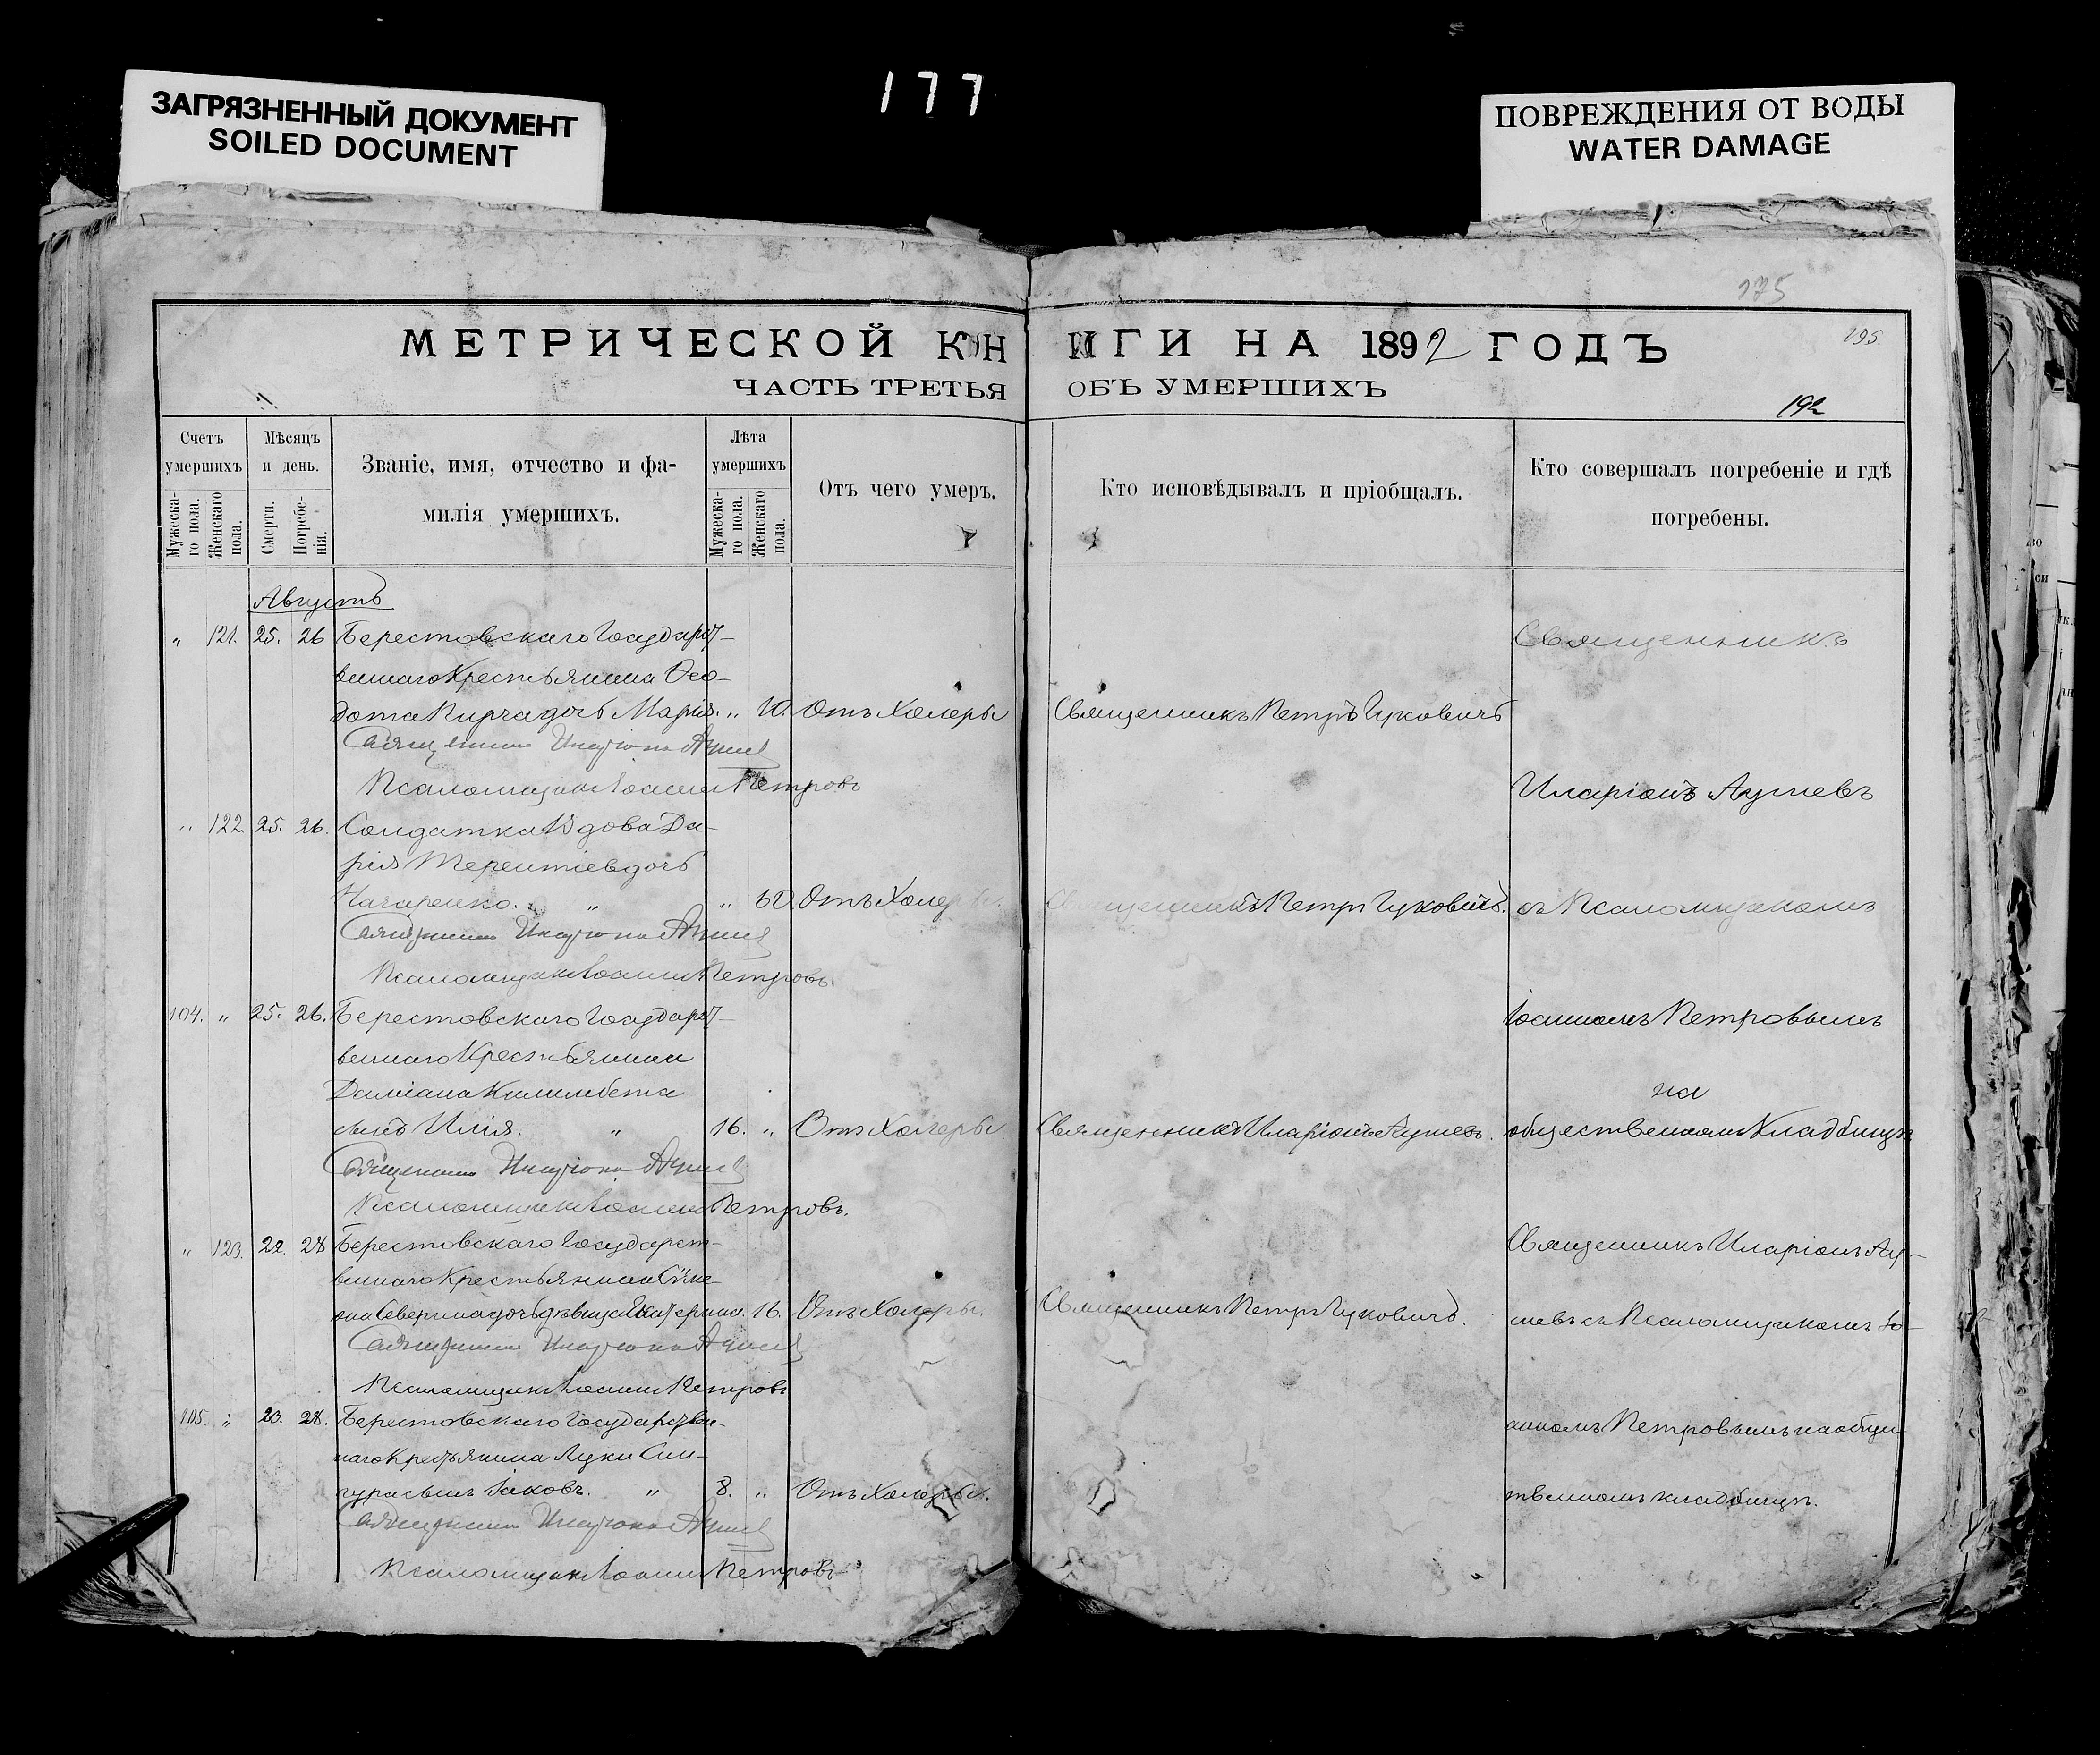 177
ЗАГРЯЗНЕННЫЙ ДОКУМЕНТ
SOILED DOCUMENT
ПОВРЕЖДЕНИЯ ОТ ВОДЫ
WATER DAMAGE
175
195.
МЕТРИЧЕСКОЙ КН
ИГИ НА 1892 ГОДЪ
ЧАСТЬ ТРЕТЬЯ
ОБЪ УМЕРШИХЪ
192
Счетъ умершихъ
Мужеска-го пола.
Женскаго пола.
Мѣсяцъ и день.
Смерти.
Погребе-нія.
Званіе, имя, отчество и фа-
милія умершихъ.
Лѣта умершихъ
Мужеска-го пола.
Женскаго пола.
Отъ чего умеръ.
Кто исповѣдывалъ и пріобщалъ.
Кто совершалъ погребеніе и гдѣ
погребены.
Августъ
„ 121. 25. 26 Берестовскаго Государст-
веннаго Крестьянина Ѳео-
дота Кирча дочь Марія. „ 10. Отъ Холеры
Священникъ Петръ Чуковичъ
Священникъ Иларіонъ
Псаломщикъ Іоаннъ Петровъ
„ 122. 25. 26. Солдатка Вдова Да-
рія Терентіев дочь
„ 60. Отъ Холеры.
Священникъ Петръ Чуковичъ.
Священникъ Иларіонъ
Псаломщикъ Іоаннъ Петровъ.
104. „ 25. 26. Берестовскаго Государст-
веннаго Крестьянина
Даміана
сынъ Илія. „ 16. „ Отъ Холеры
Священникъ Иларіонъ
Священникъ Иларіонъ
Псаломщикъ Іоаннъ Петровъ.
„ 123. 22. 28 Берестовскаго Государст-
веннаго Крестьянина Симе-
она дочь дѣвица Екатерина. 16. Отъ Холеры.
Священникъ Петръ Чуковичъ.
Священникъ Иларіонъ
Псаломщикъ Іоаннъ Петровъ
105. „ 23. 28. Берестовскаго Государствен-
наго Крестьянина Луки
сынъ Іаковъ. „ 8. „ Отъ Холеры.
Священникъ Иларіонъ
Псаломщикъ Іоаннъ Петровъ
Священникъ
Иларіонъ
съ Псаломщикомъ
Іоанномъ Петровымъ
на
общественномъ Кладбищѣ
Священникъ Иларіонъ
съ Псаломщикомъ Іо-
анномъ Петровымъ на общес-
твенномъ кладбищѣ.